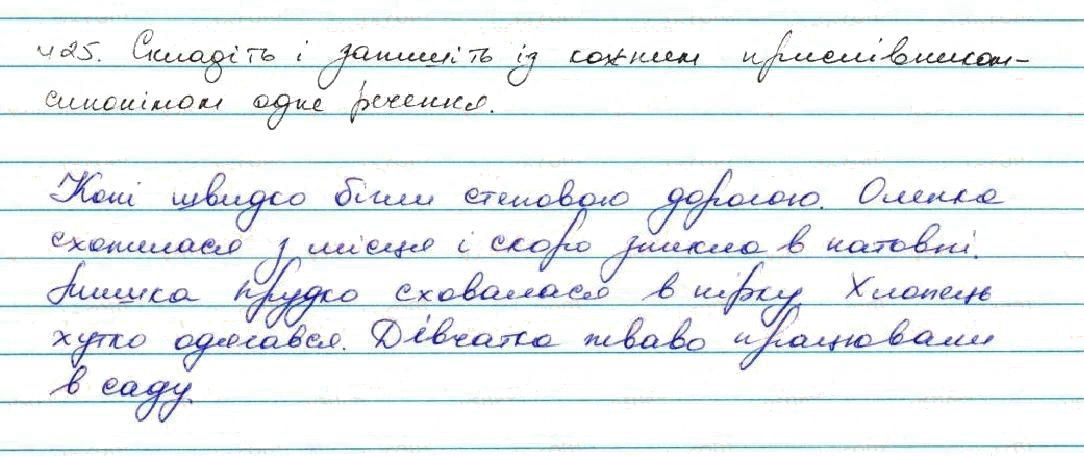 425. Складіть і запишіть із кожним прислівником-
синонімом одне речення.
Коні швидко бігли степовою дорогою. Оленка
схопилася з місця і скоро зникла в натовпі.
Мишка прудко сховалася в нірку. Хлопець
хутко одягався. Дівчатка жваво працювали
в саду.